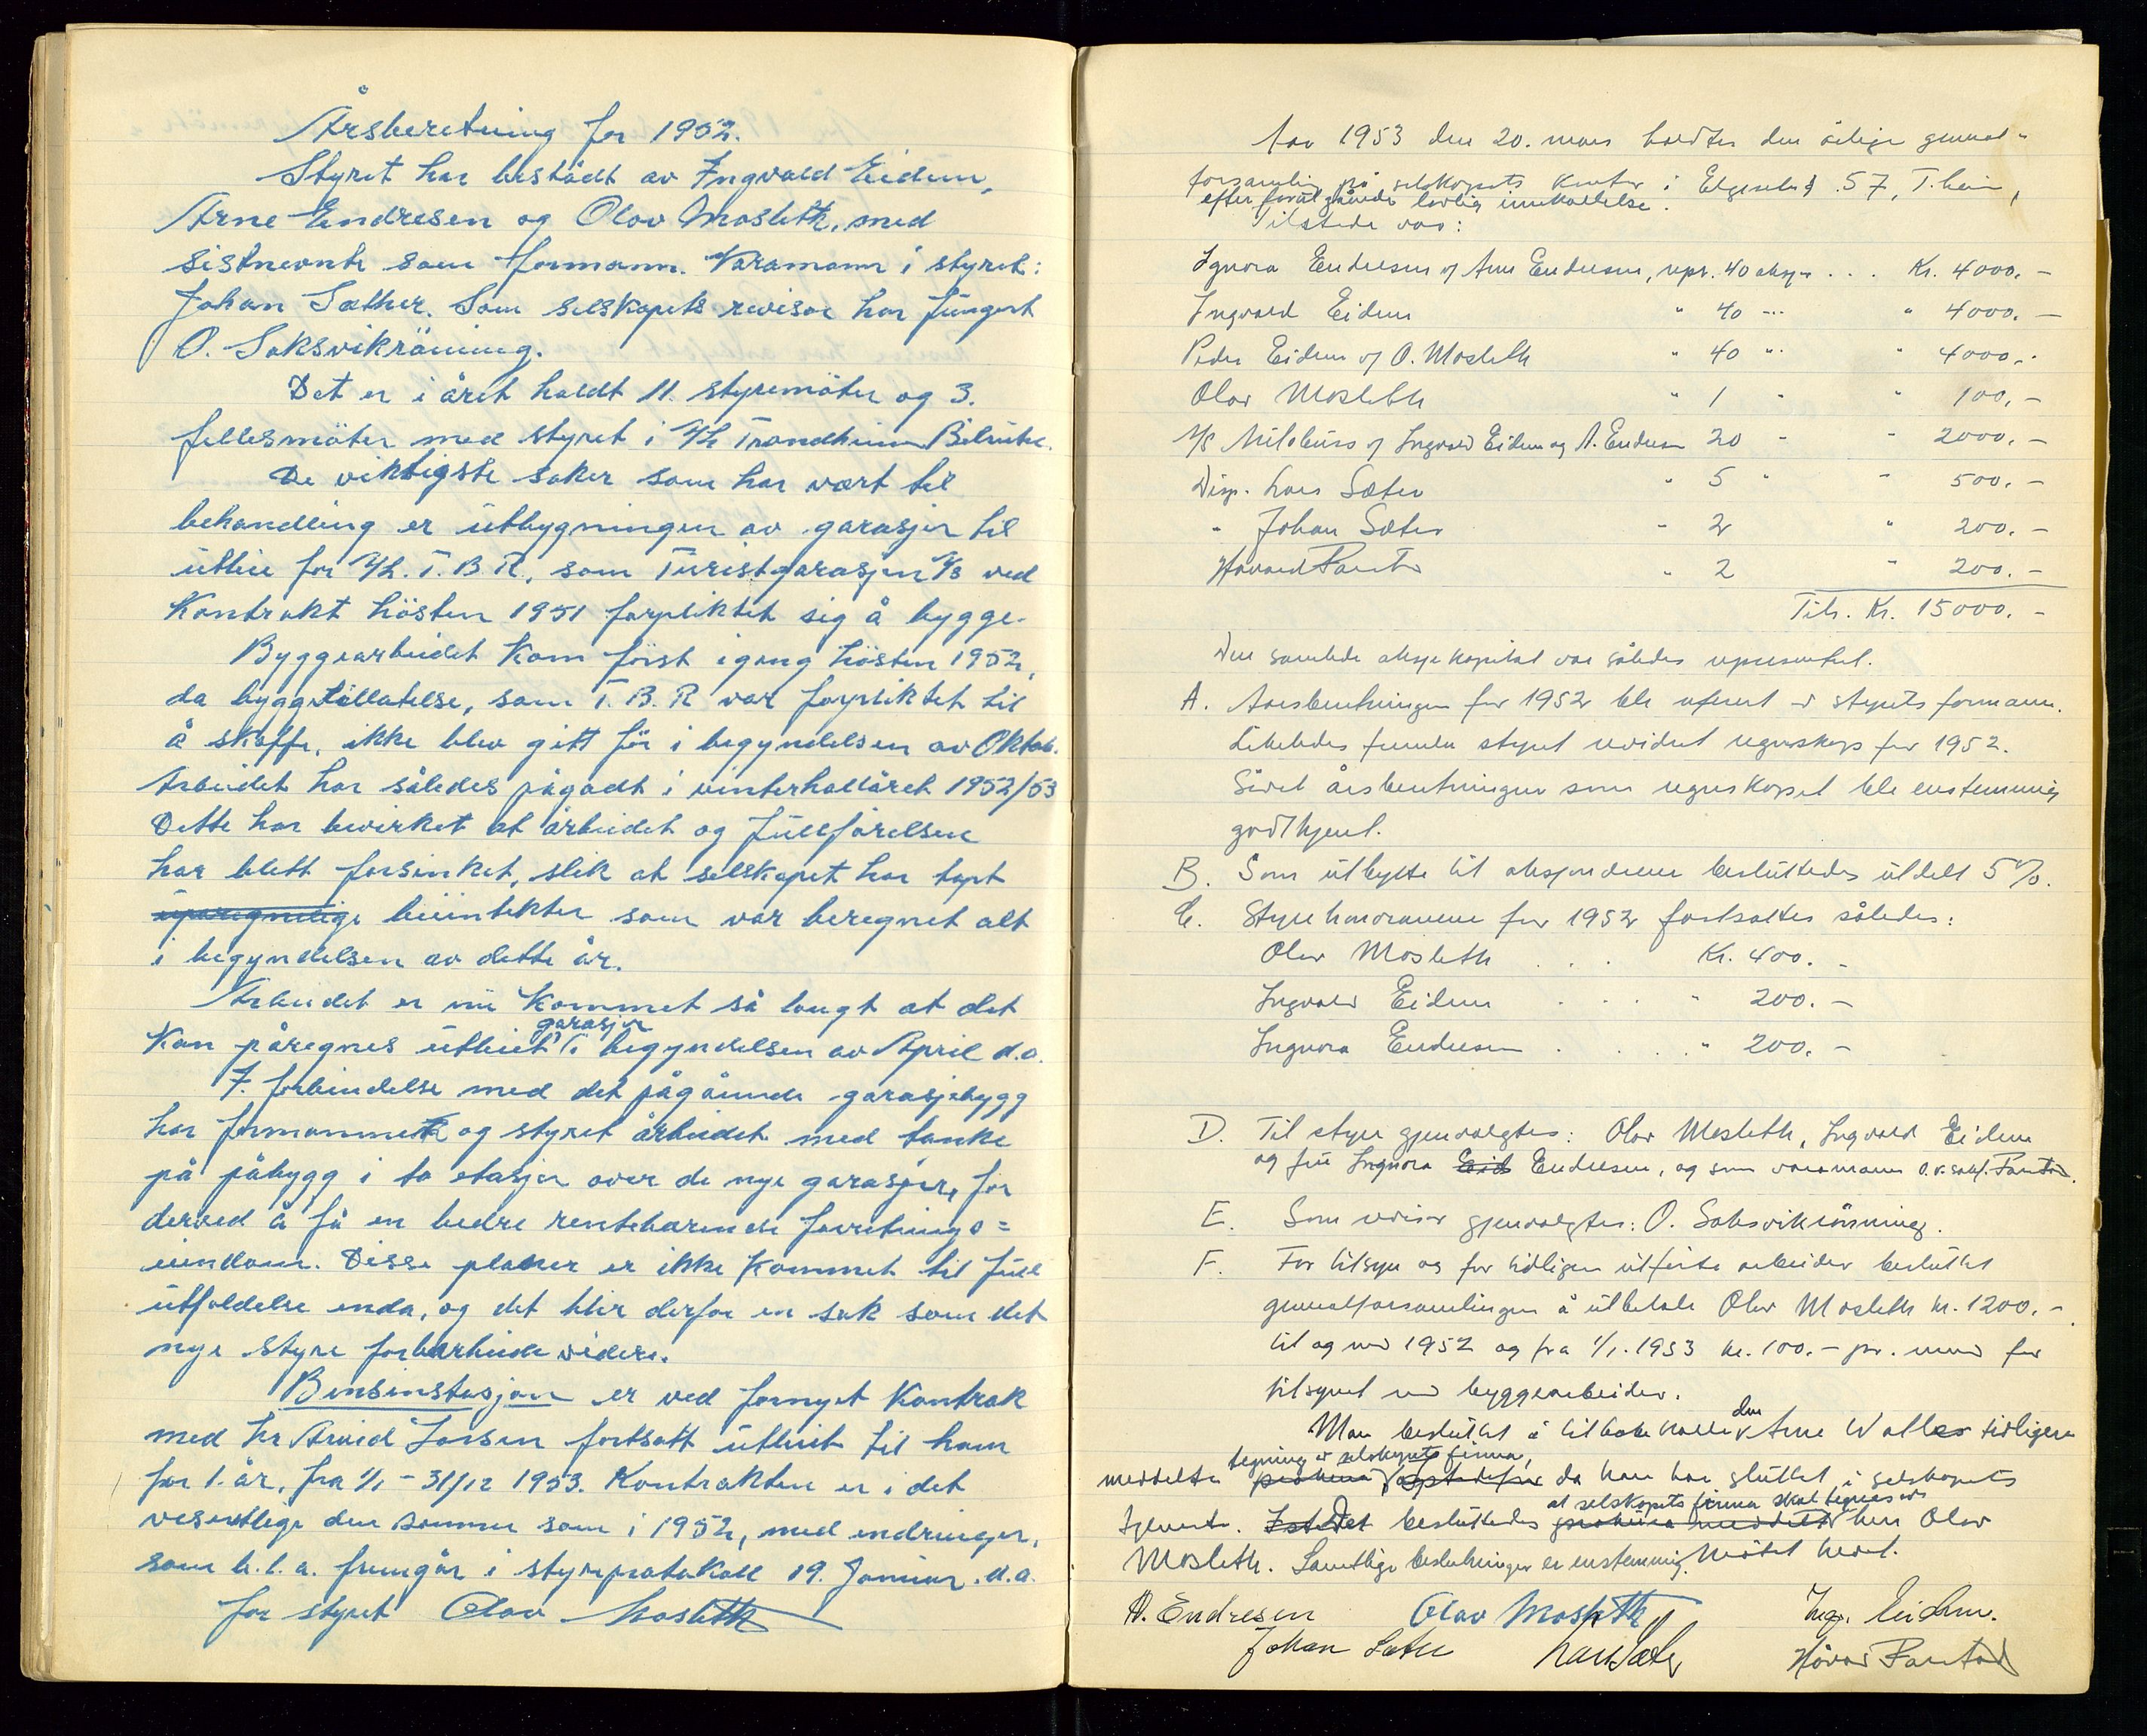 Årsberetning for 1952.
Styret har bestådt av Ingvald Eidem,
Arne Endresen og Olav Mosleth, med
sistnevnte som formann. Varamann i styret:
Johan Sæther. Som selskapets revisor har fungert
O. Saksvikråning.
Det er i året holdt 11. styremöter og 3.
fellesmöter med styret i A/L Trondheim Bilruter.
De viktigste saker som har vært til
behandling er utbygningen av garasjer til
utleie for A/L. T.B.R., som Turistgarasjen A/S ved
Kontrakt hösten 1951 forpliktet sig å bygge.
Byggearbeidet kom först igang hösten 1952,
da byggetillatelse, som T.B.R var forpliktet til
å skaffe, ikke blev gitt för i begyndelsen av Oktob.
Arbeidet har således pågådt i vinterhalåret 1952/53
Dette har bevirket at arbeidet og fullförelsen
har blitt forsinket, slik at selskapet har tapt
upåregnelige leieintekter som var beregnet alt
i begyndelsen av dette år.
Arbeidet er nu kommet så langt at det
garasjer
kan påregnes utleiet i begyndelsen av April d.a.
I forbindelse med det pågående garasjebygg
har formannen og styret arbeidet med tanke
på påbygg i to etasjer over de nye garasjer, for
derved å få en bedre rentebærende forretnings=
eiendom. Disse planer er ikke kommet til full
utfoldelse enda, og det blir derfor en sak som det
nye styre får arbeide videre.
Bensinstasjon er ved fornyet Kontrak
med hr Arvid Larsen fortsatt utleiet til ham
for 1. år, fra 1/1 - 31/12 1953. Kontrakten er i det
vesentlige den samme som i 1952, med endringer,
som b.l.a. fremgår i styreprotokoll 19. Januar d.a.
for styret Olav Mosleth
Aar 1953 den 20. mars holdtes den årlige general-
forsamling på selskapets kontor i Elgesetergt. 57, T.heim,
efter forutgående lovlig innkallelse.
Tilstede var:
Ingvora Endresen v/ Arne Endresen, repr. 40 aksjer . . . Kr. 4000.-
Ingvald Eidem " 40 -" " 4000.-
Peder Eidem v/ O. Mosleth " 40 " " 4000.-
Olav Mosleth " 1 " " 100.-
A/S Nidoburo v/ Ingvald Eidem og A. Endresen 20 - " 2000.-
Disp. Lars Sæter " 5 " " 500.-
" Johan Sæter " 2 " 200.-
Håvard Partad " 2 " 200.-
Tils. Kr. 15000.-
Den samlede aksjekapital var således representert.
A. Aarsberetningen for 1952 ble referert av styrets formann.
Likeledes fremla styret revidert regnskap for 1952.
Såvel årsberetningen som regnskapet ble enstemmig
godtkjent.
B. Som utbytte til aksjonærene besluttedes utdelt 5%.
C. Styrehonorarene for 1952 fastsattes således:
Olav Mosleth . . . Kr. 400.-
Ingvald Eidem . . . " 200.-
Ingvora Endresen . . . . " 200.-
D. Til styre gjenvalgtes: Olav Mosleth, Ingvald Eidem
og fru Ingvora Eid Endresen, og som varamann Partad.
E. Som revisor gjenvalgtes: O. Saksvikrönning.
F. For tilsyn og for tidligere utförte arbeider besluttet
generalforsamlingen å utbetale Olav Mosleth kr. 1200.-
til og med 1952 og fra 1/1. 1953 kr. 100.- pr. mnd for
tilsynet ved byggearbeider.
den
Man besluttet å tilbakekalle Arne Walles tidligere
tegning av selskapets firma,
meddelte prokura da han har sluttet i selskapets
at selskapets firma skal tegnes av
tjeneste. Istedet besluttedes prokura meddelt herr Olav
Mosleth. Samtlige beslutninger er enstemmig. Mötet hevet.
A. Endresen Olav Mosleth Ingv. Eidem.
Johan Sæter Lars Sæter Håvard Partad